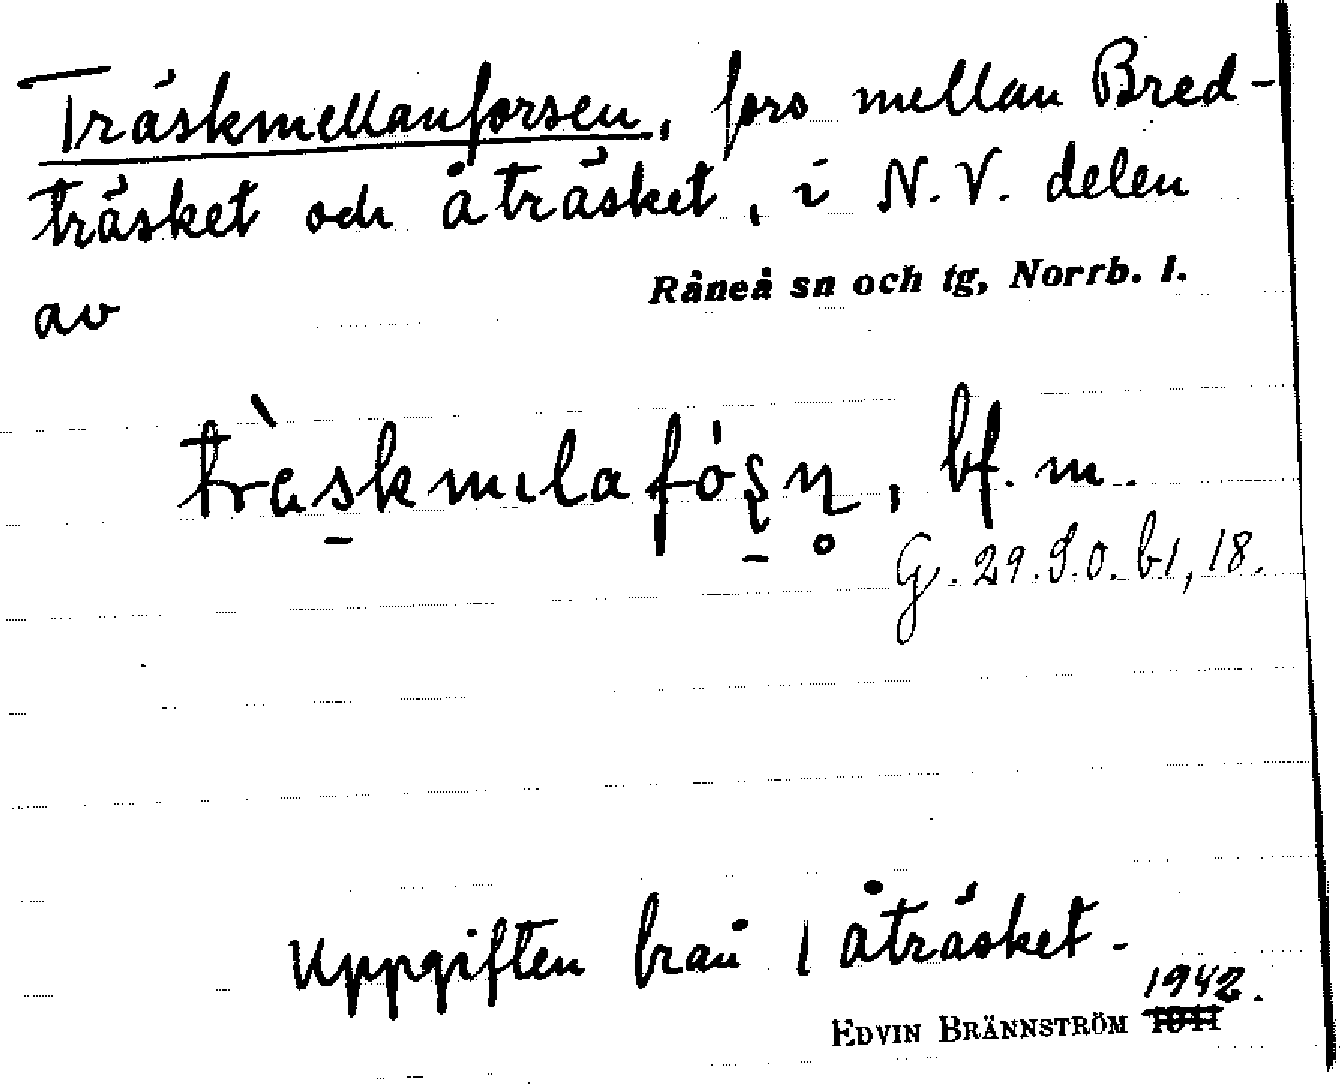 Träskmellanforsen, fors mellan Bred-
träsket och Åträsket, i N.V. delen
av Råneå sn och tg, Norrb. l.
tràskmılafósn, bf. m.
G. 29. S.O. b1, 18.
Uppgiften från Åträsket.
1942.
EDVIN BRÄNNSTRÖM 1941